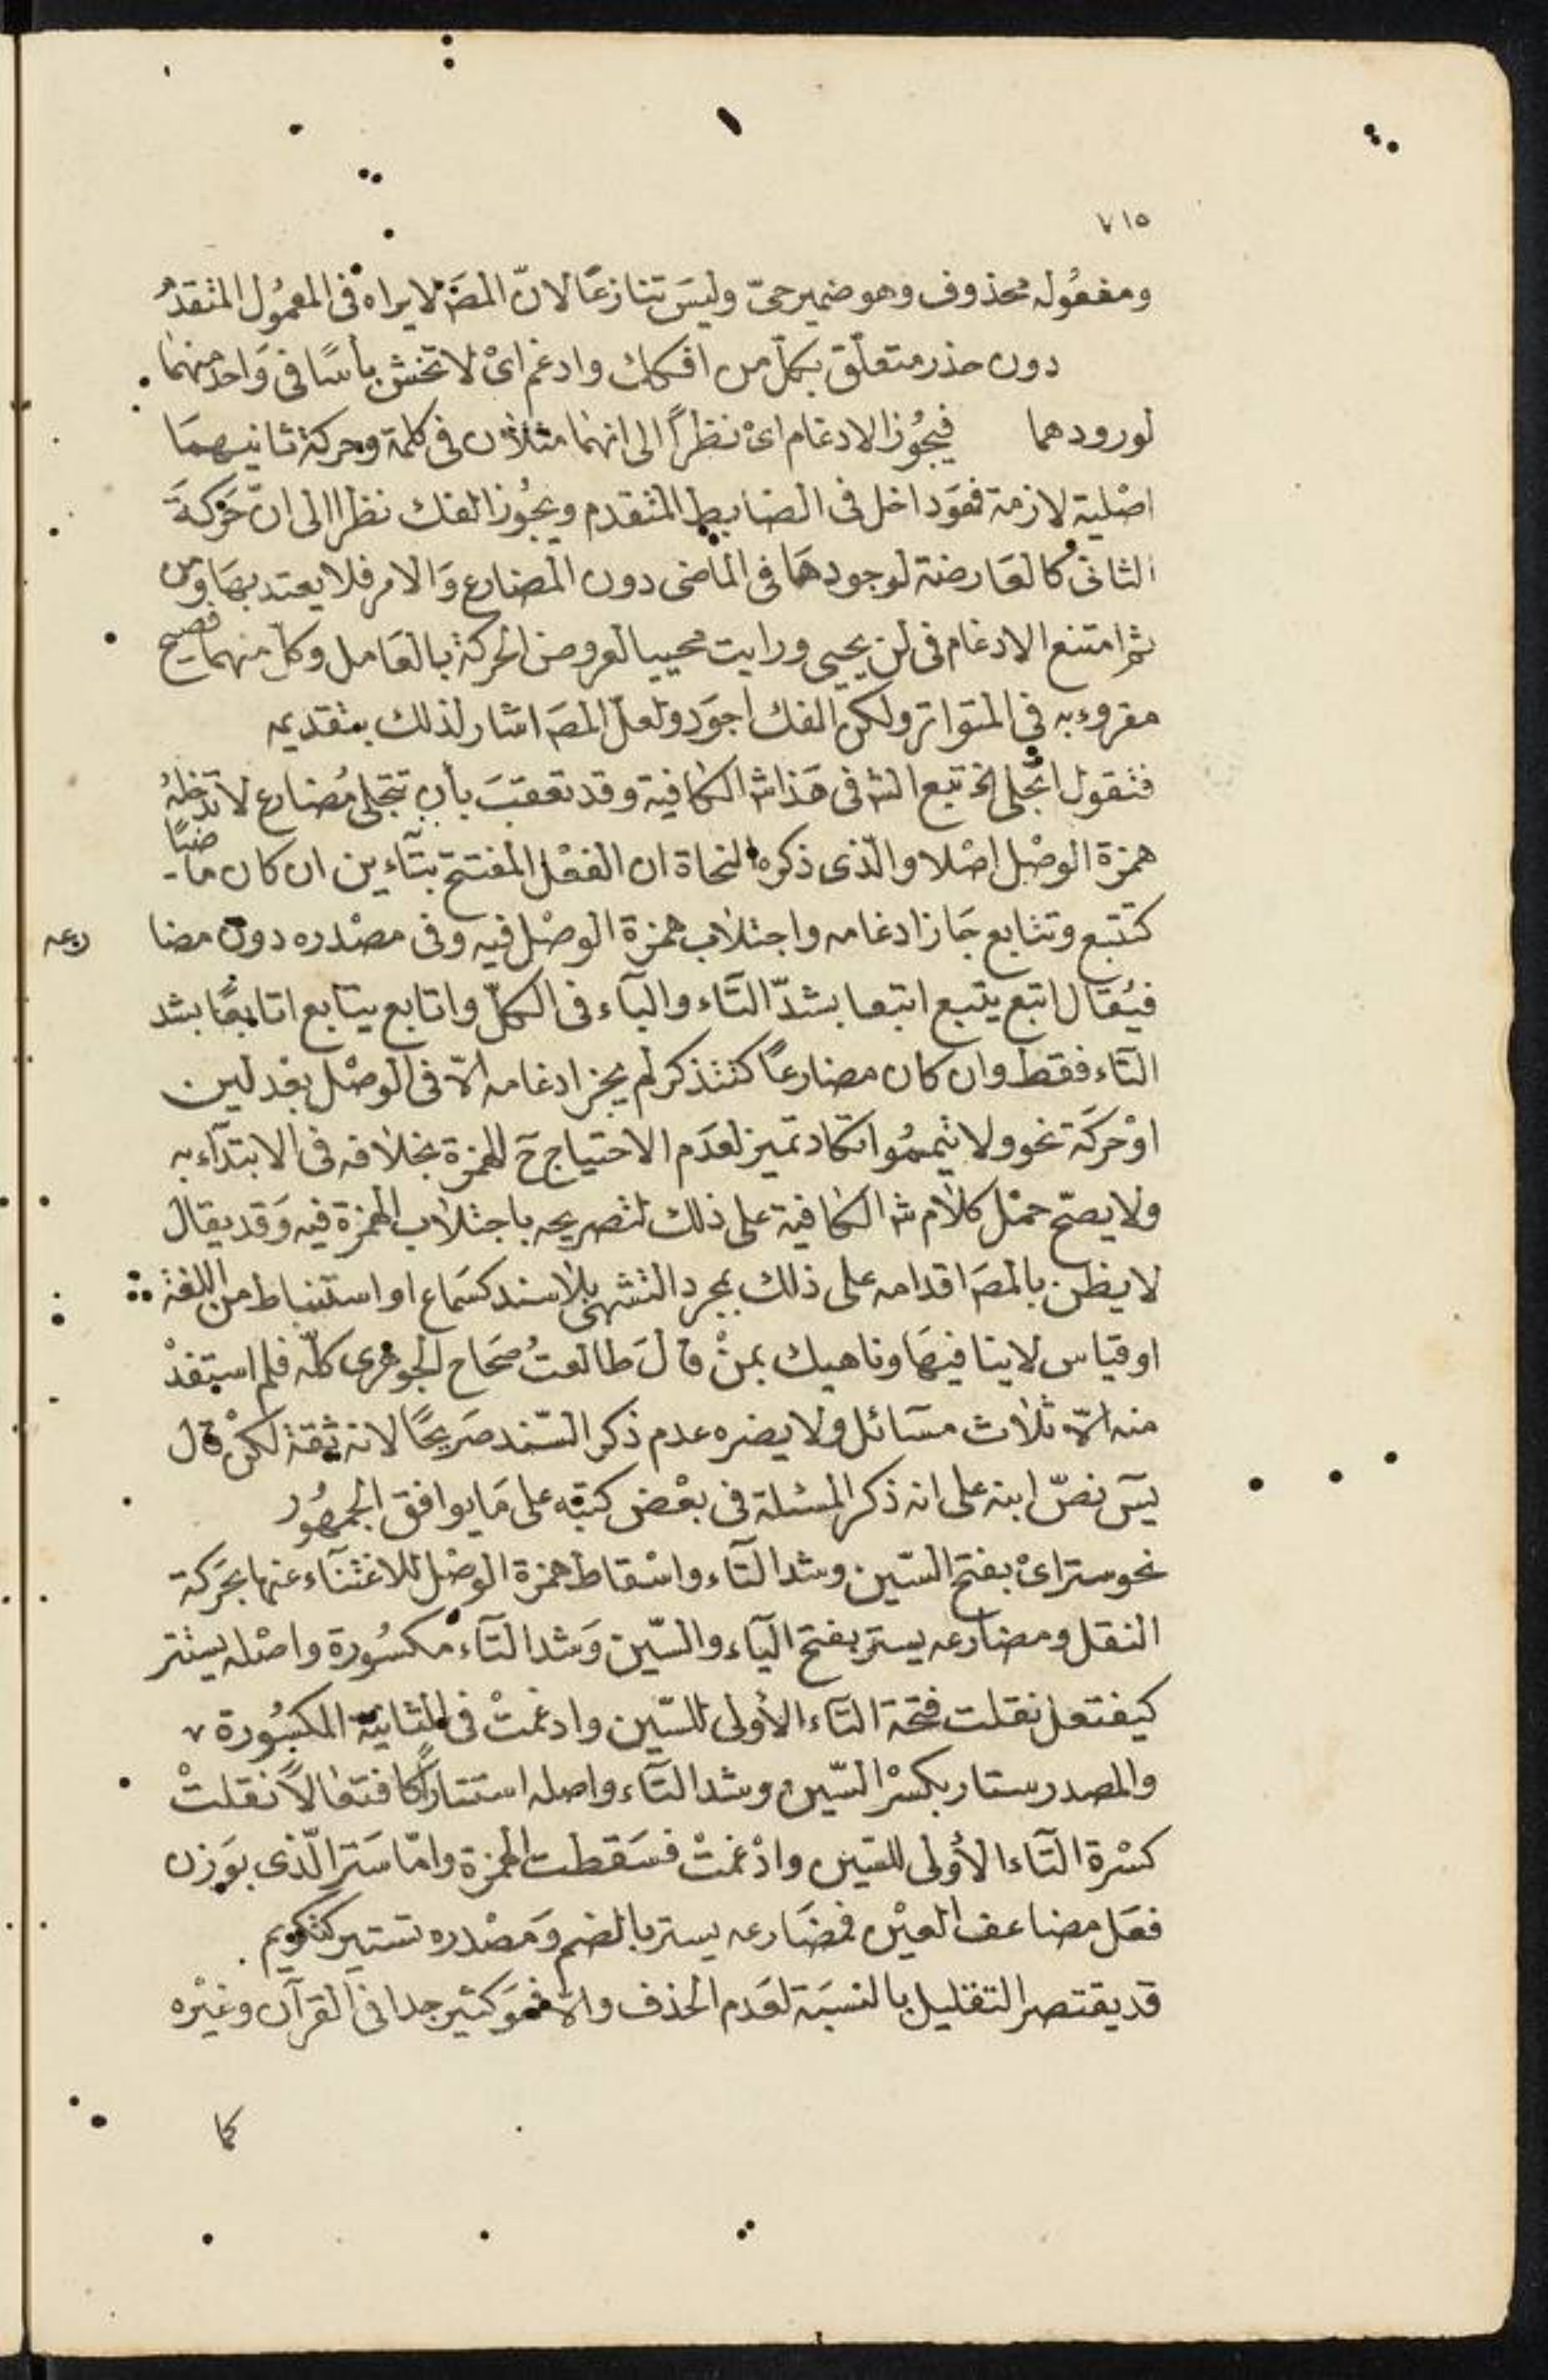 ٧١٥
ومفعُوله محذوف وهو ضمير حيّ وليسَ تنازعًا لانّ المصَ لا يراه فى المعمُول المتقدم
دون حذر متعلّق بكلّ من افكك وادغم اىْ لا تخش باسًا فى وَاحد منهمَا
لورودهما فيجُوز الادغام اىْ نظرًا الى انهما مثلان فى كلمة وحركة ثانيهمَا
اصْلية لازمة فهوَ داخل فى الضابط المتقدم ويجُوز الفك نظرا الى انّ حَركةَ
الثانى كالعَارضة لوجودهَا فى الماضى دون المضارع وَالامر فلا يعتد بهَا ومن
ثم امتنع الادغام فى لن يحيى ورايت محييا لعروض الحركة بالعَامل وكل منهما فصيح
مقروء به فى المتواتر ولكن الفك اجوَد ولعلّ المصَ اشار لذلك بتقديمه
فتقول اتجلى الخ تبع الشَ فى هَذا شَ الكافية وقد تعقبَ بأن تتجلى مُضارع لا تدخلهُ
همزة الوصْل اصْلا والّذى ذكره النحاة ان الفعْل المفتتح بتآءين ان كان ماضيًا
كتتبع وتتابع جَاز ادغامه واجتلاب همزة الوصْل فيه وفى مصْدره دون مضا رعه
فيُقال اتبع يتبع اتبعا بشدّ التَاء والبآء فى الكلّ واتابع يتابع اتابعًا بشد
التاء فقط وان كان مضارعًا كتتذكر لم يجز ادغامه الّا فى الوصْل بعْد لين
اوْ حركَة نحو ولا تيممُوا تكاد تميز لعدَم الاحتياج حَ للهمزة بخلافه فى الابتدآء به
ولا يصحّ حمْل كلام شَ الكافية على ذلك لتصريحه باجتلاب الهمزة فيه وَقد يقال
لا يظن بالمصَ اقدامه على ذلك بمجرد التشهى بلا سند كسَماع او استنباط من اللغة
او قياس لا ينافيهَا وناهيك بمنْ قالَ طالعتُ صحَاح الجوهرى كلّه فلم استفدْ
منه الّا ثلاث مسَائل ولا يضره عدم ذكر السّند صَريحًا لانه ثقة لكنْ قال
يسَ نصّ ابنه على انه ذكر المسئلة فى بعْض كتبه على مَا يوافق الجمهُور
نحو ستر اىْ بفتح السّين وشد التآء واسْقاط همزة الوصْل للاغتنآء عنها بحَركة
النقل ومضارعه يستر بفتح اليآء والسّين وَشد التآء مكسُورة واصْله يستتر
كيفتعل نقلت فتحَة التاء الأولى للسّين وادغمتْ فى الثانية المكسُورة
والمصدر ستار بكسْر السّين وشد التآء واصله استتارًا كافتعالًا نقلتْ
كسْرة التَآء الأولى للسّين وادْغمتْ فسَقطت الهمزة وامّا سَتر الّذى بوَزن
فعَل مضاعف العيْن فمضَارعه يستر بالضم وَمصْدره تستير كتكويم
قد يقتصر التقليل بالنسبَة لعَدم الحذف والّا فهوَ كثير جدا فى القرآن وغيْره
كما